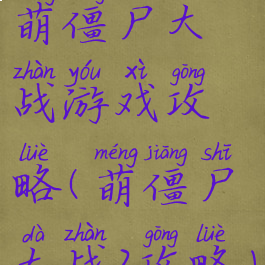 萌僵尸大
zhàn yóu xì gōng
战游戏攻
lüè méng jiāng shī
略(萌僵尸
dà zhàn gōng lüè
大战)攻略)